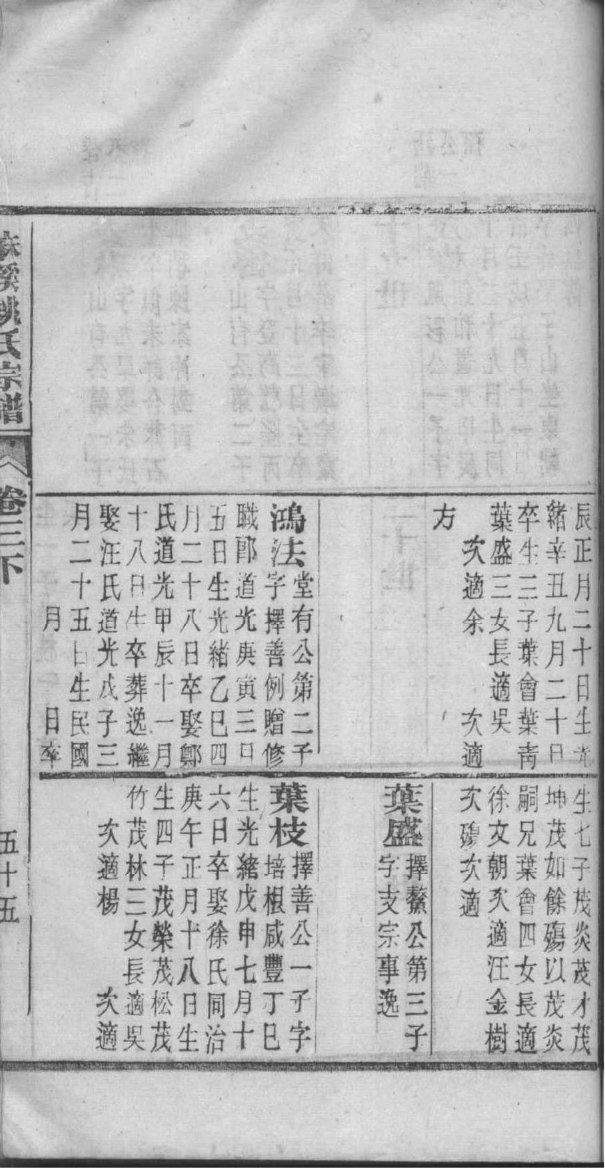 辰正月二十日生光
緒辛丑九月二十日
卒生三子葉會葉南
葉盛三女長適吳
次適余　次適
方
鴻法堂有公第二子
字擇善例贈修
職郎道光庚寅三日
五日生光緒乙巳四
月二十八日卒娶鄭
氏道光甲辰十一月
十八日生卒葬逸繼
娶汪氏道光戊子三
月二十五日生民國
月　日卒
生七子茂炎茂才茂
坤茂如餘殤以茂炎
嗣兄葉會四女長適
徐文朝次適汪金樹
次殤次適
葉盛擇鰲公第三子
字支宗事逸
葉枝擇善公一子字
培根咸豐丁巳
生光緒戊申七月十
六日卒娶徐氏同治
庚午正月十八日生
生四子茂榮茂松茂
竹茂林三女長適吳
次適楊　次適
姚氏宗譜
卷三下
五十五